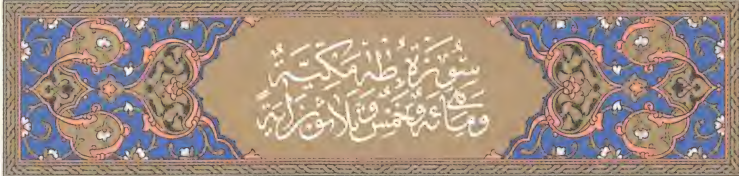 سُورَةُ طٰهٰ مَكِّيَّةٌ
وَمِائَةٌ وَخَمْسٌ وَثَلَاثُونَ آيَةً